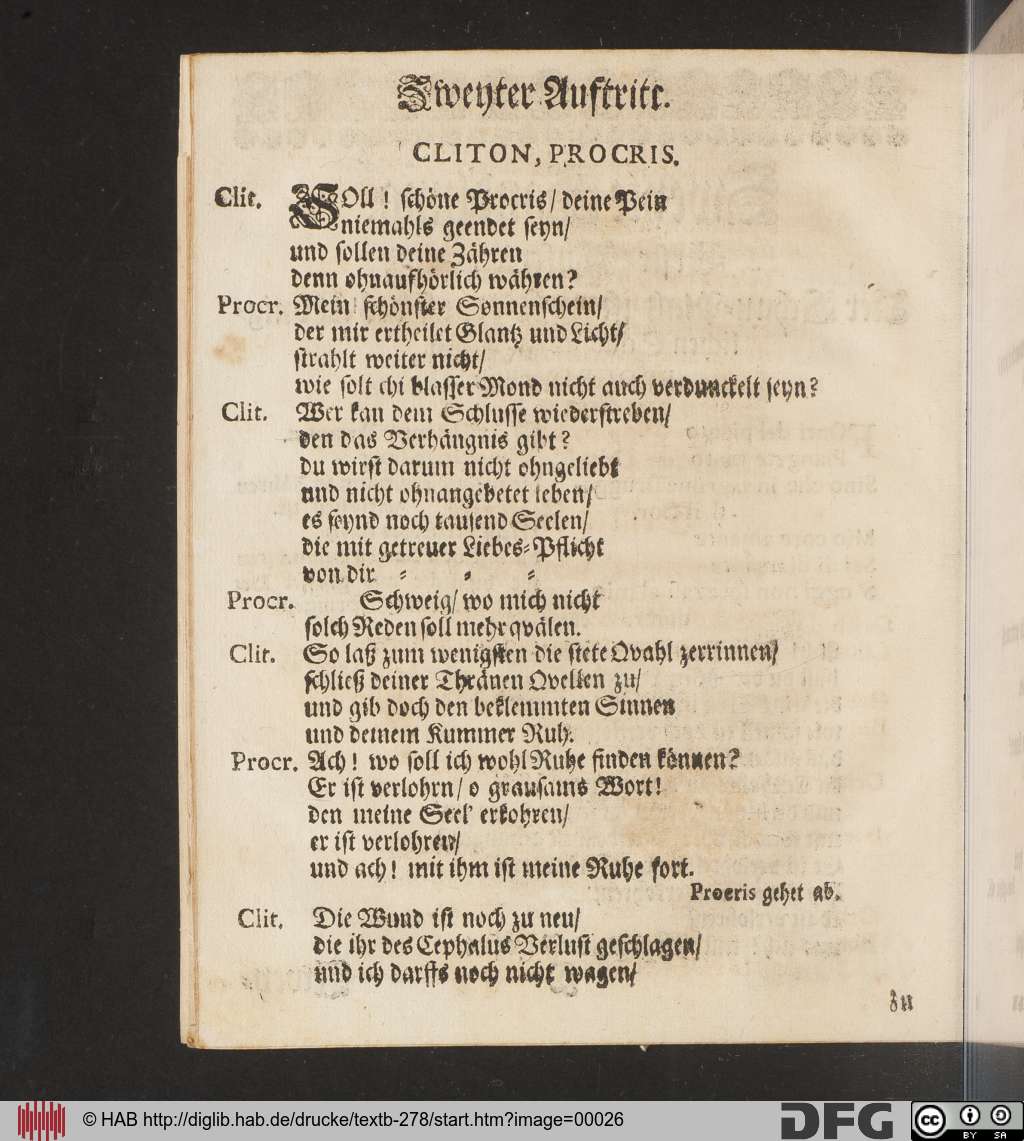 Zweyter Auftritt.
CLITON, PROCRIS.
Clit. SOll! schöne Procris/ deine Pein
niemahls geendet seyn/
und sollen deine Zähren
denn ohnaufhörlich währen?
Procr. Mein schönster Sonnenschein/
der mir ertheilet Glantz und Licht/
strahlt weiter nicht/
wie solt ich blasser Mond nicht auch verdunckelt seyn?
Clit. Wer kan dem Schlusse wiederstreben/
den das Verhängnis gibt?
du wirst darum nicht ohngeliebt
und nicht ohnangebetet leben/
es seynd noch tausend Seelen/
die mit getreuer Liebes-Pflicht
von dir - - -
Procr. Schweig/ wo mich nicht
solch Reden soll mehr qvälen.
Clit. So laß zum wenigsten die stete Qvahl zerrinnen/
schließ deiner Thränen Qvellen zu/
und gib doch den beklemmten Sinnen
und deinem Kummer Ruh.
Procr. Ach! wo soll ich wohl Ruhe finden können?
Er ist verlohrn/ o grausams Wort!
den meine Seel' erkohren/
er ist verlohren/
und ach! mit ihm ist meine Ruhe fort.
Procris gehet ab.
Clit. Die Wund ist noch zu neu/
die ihr des Cephalus Verlust geschlagen/
und ich darffs noch nicht wagen/
zu
© HAB http://diglib.hab.de/drucke/textb-278/start.htm?image=00026
DFG
cc BY SA